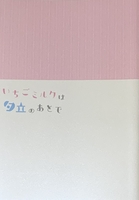 いちごミルクは
夕立のあとで